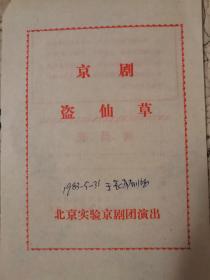 京剧
盗仙草
1983-5-31 于长安剧场
北京实验京剧团演出